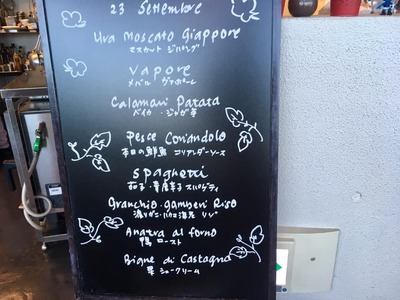 23 Settembre
Uva Moscato Giappone
マスカット ジパング
Vapore
メバル ヴァポーレ
Calamari Patata
ベイカ ・ジャガ芋
Pesce Coriandolo
本日の鮮魚 コリアンダーソース
Spaghetti
茄子・唐辛子 スパゲティ
Granchio・gamberi Riso
渡りガニ・リゾ
Anatra al forno
鴨 ロースト
Bigne di Castagna
栗 シュークリーム